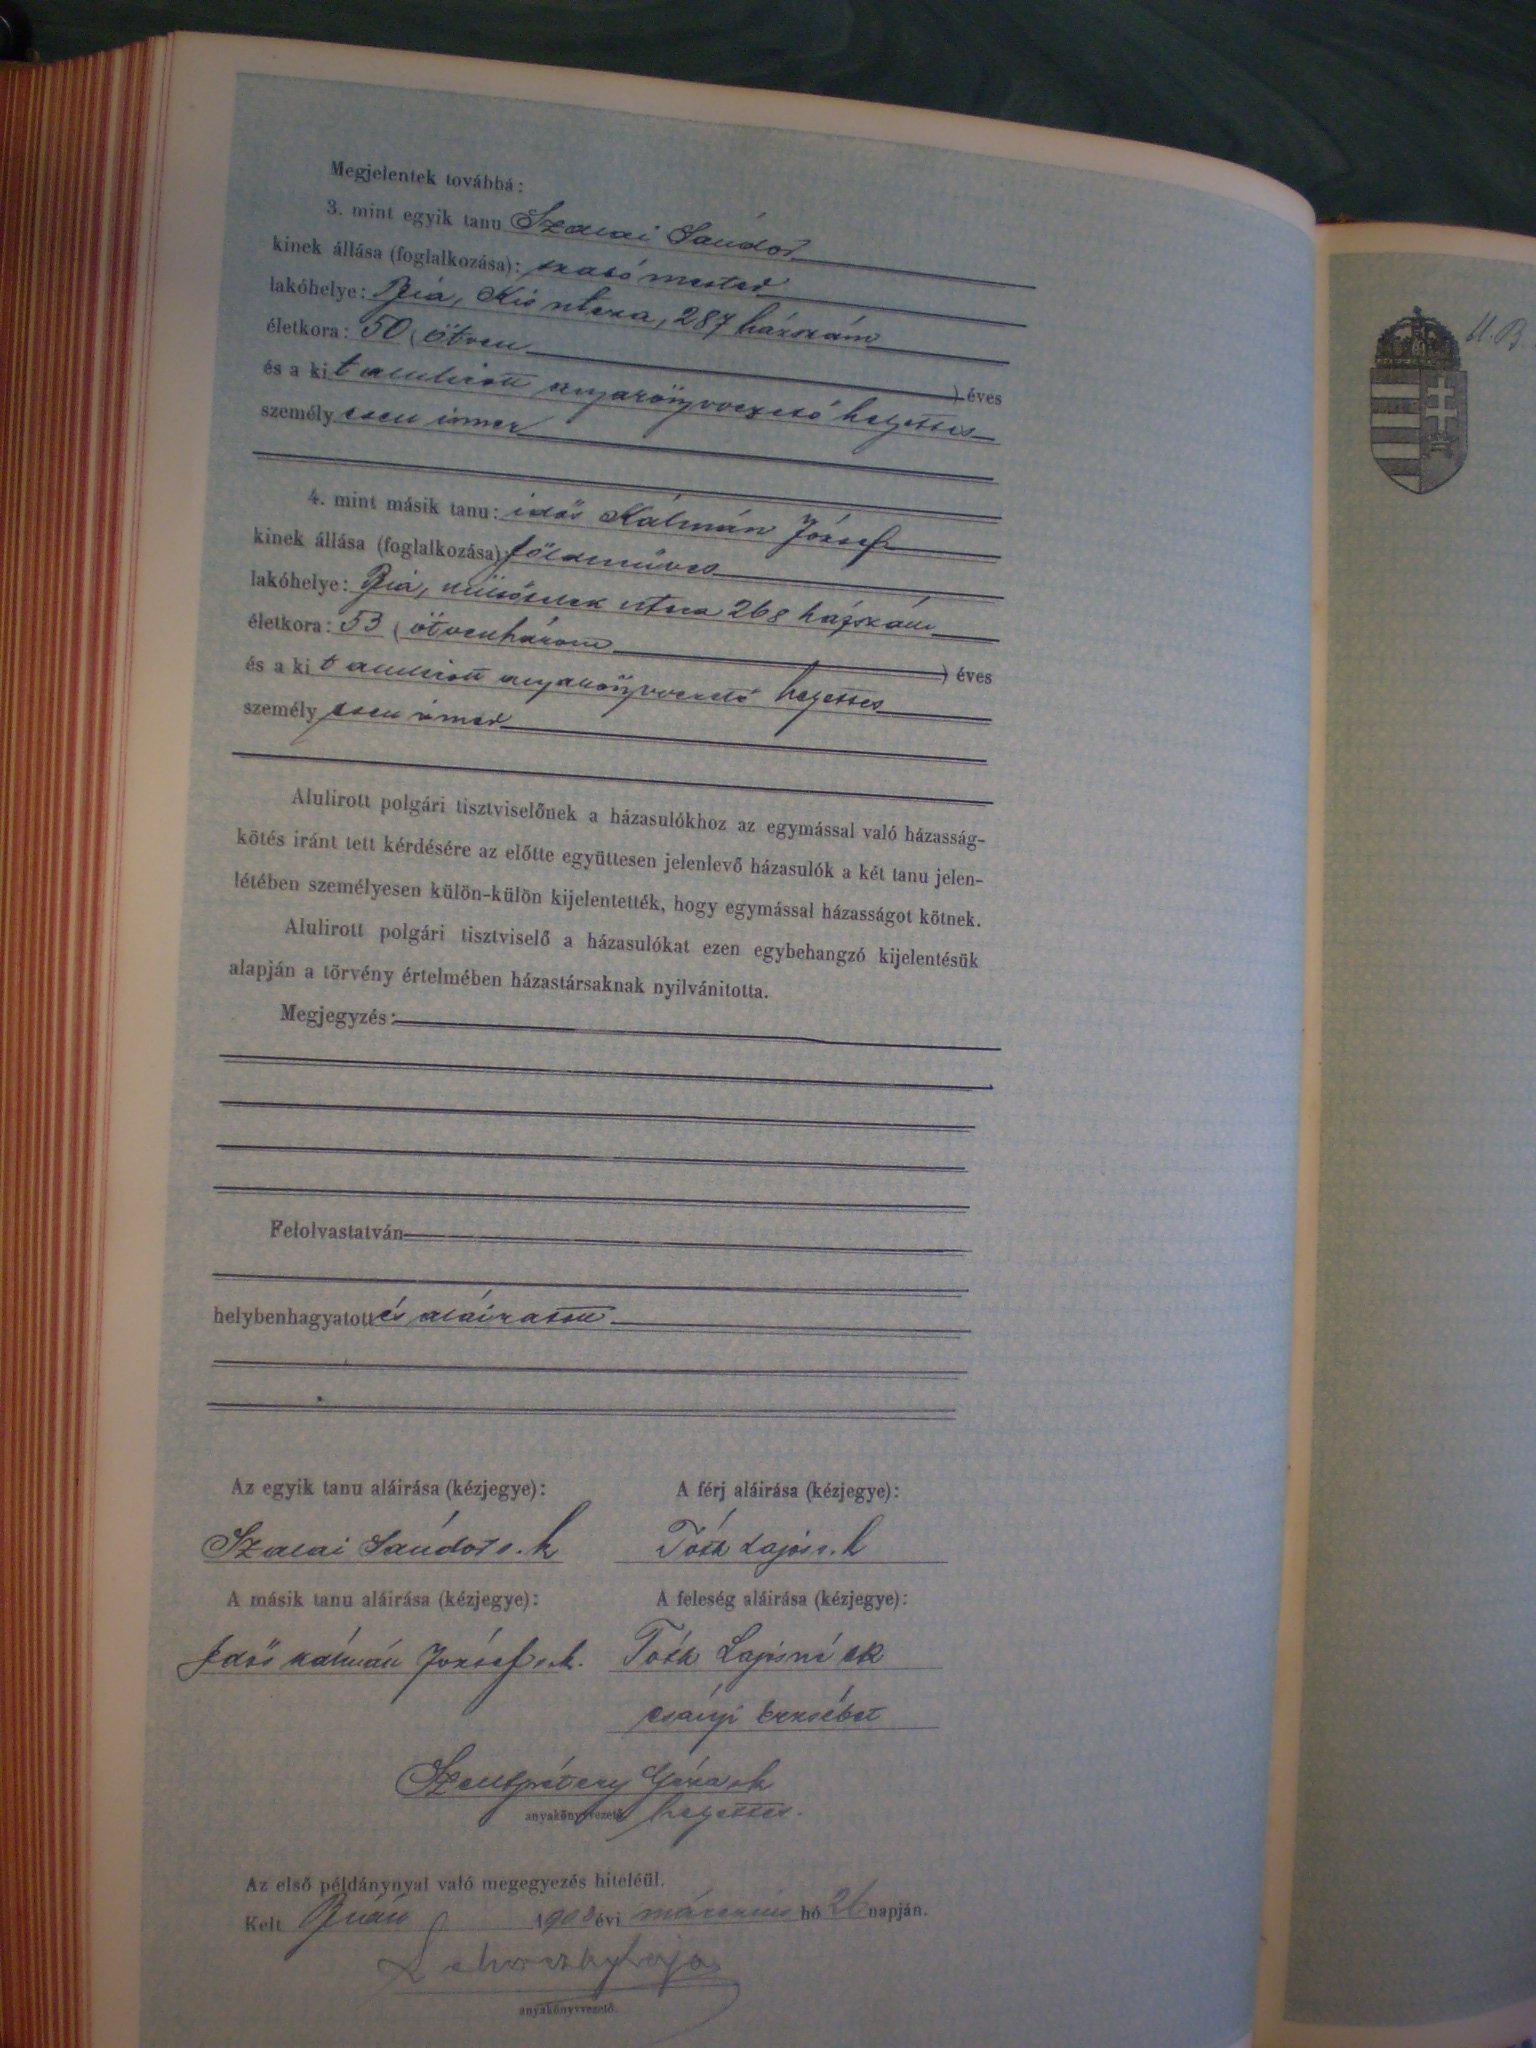 Megjelentek továbbá:
3. mint egyik tanu Szalai Sándor
kinek állása (foglalkozása): szabó mester
lakóhelye: Bia, Kis utcza, 287 házszám
életkora: 50 (ötven ) éves
és a kit alulirott anyakönyvvezető helyettes
személy esen ismer
4. mint másik tanu: idős Kálmán József
kinek állása (foglalkozása) földmüves
lakóhelye: Bia, utcza 268 házszám
életkora: 53 (ötvenhárom ) éves
és a kit alulirott anyakönyvvezető helyettes
személy esen ismer
Alulirott polgári tisztviselőnek a házasulókhoz az egymással való házasság-
kötés iránt tett kérdésére az előtte együttesen jelenlevő házasulók a két tanu jelen-
létében személyesen külön-külön kijelentették, hogy egymással házasságot kötnek.
Alulirott polgári tisztviselő a házasulókat ezen egybehangzó kijelentésük
alapján a törvény értelmében házastársaknak nyilvánitotta.
Megjegyzés:
Felolvastatván
helybenhagyatott és aláiratott
Az egyik tanu aláirása (kézjegye): A férj aláirása (kézjegye):
Szalai Sándor s. k Tóth Lajos s. k
A másik tanu aláirása (kézjegye): A feleség aláirása (kézjegye):
Idős Kálmán József s. k. Tóth Lajosné sk
csányi Erzsébet
Szentpétery Géza sk
anyakönyvvezető helyettes.
Az első példánynyal való megegyezés hiteléül.
Kelt Bián 1908 évi márczius hó 26 napján.
anyakönyvvezető.